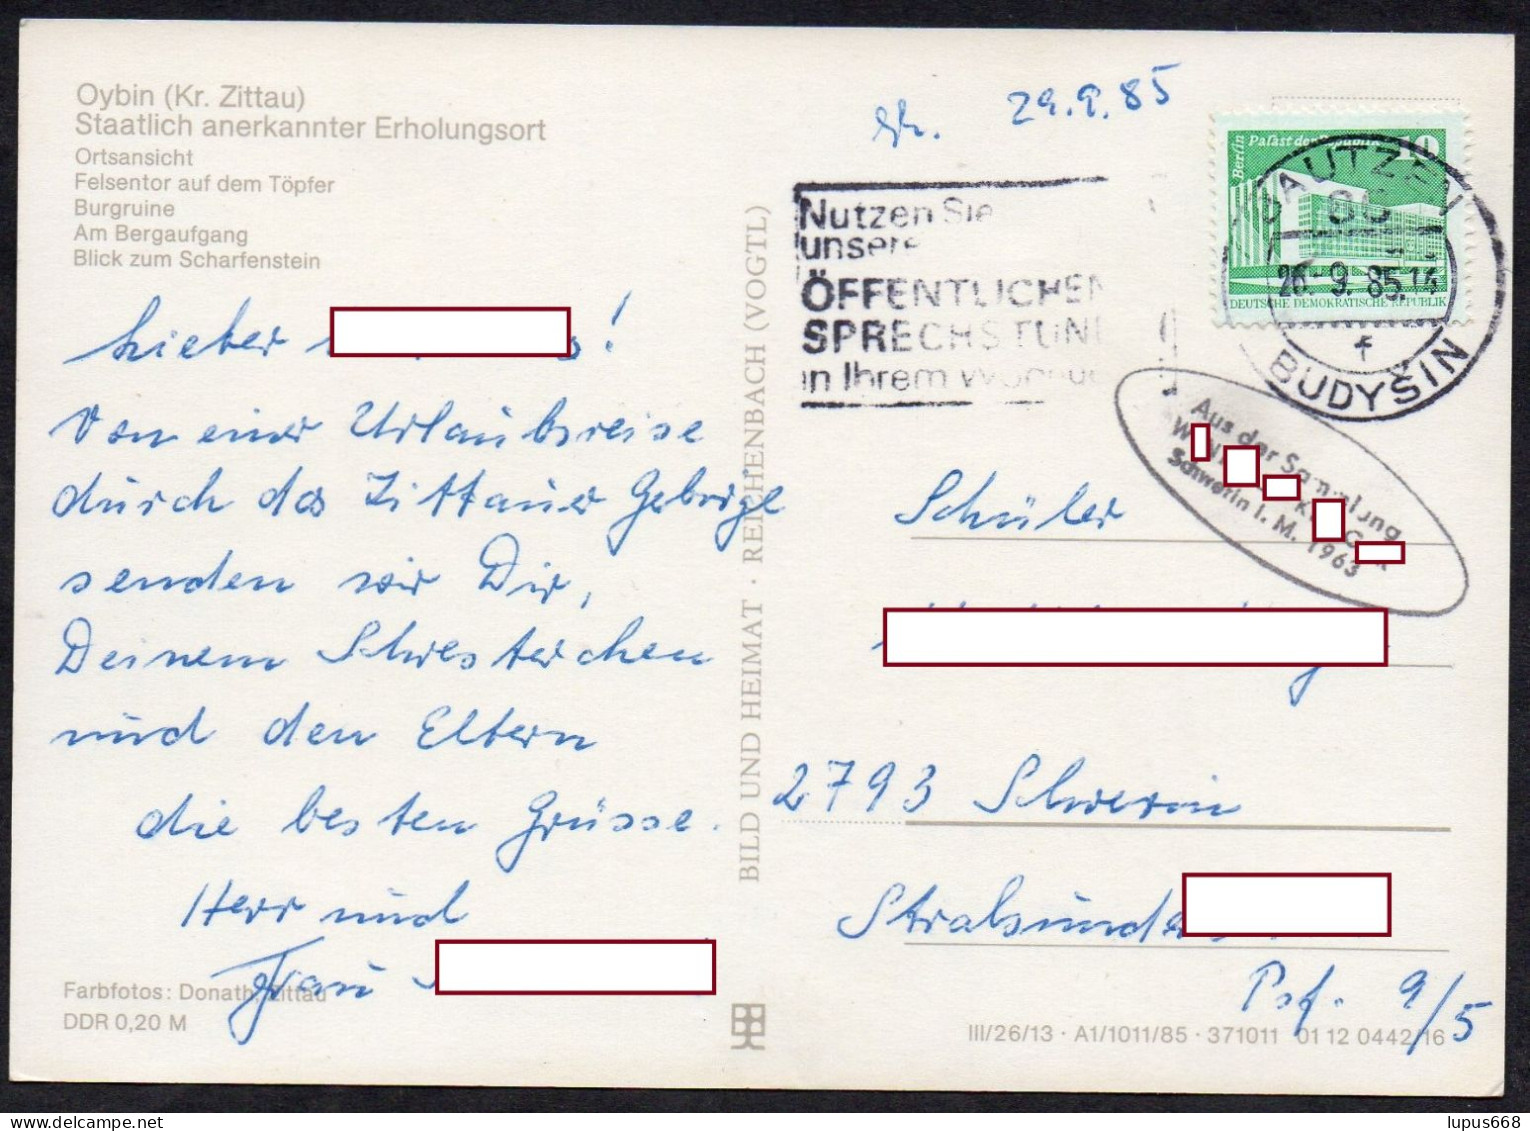 Oybin (Kr. Zittau)
Staatlich anerkannter Erholungsort
Ortsansicht
Felsentor auf dem Töpfer
Burgruine
Am Bergaufgang
Blick zum Scharfenstein
Lieber !
Von einer Urlaubsreise
durch das Zittauer Gebirge
senden wir Dir,
Deinem Schwesterchen
und den Eltern
die besten Grüsse.
Herr und
Frau
Farbfotos: Donath, Zittau
DDR 0,20 M
BILD UND HEIMAT · REICHENBACH (VOGTL)
29.9.85
Nutzen Sie
unsere
ÖFFENTLICHEN
SPRECHSTUND
in Ihrem
Berlin Palast der Republik 10
DEUTSCHE DEMOKRATISCHE REPUBLIK
BAUTZEN
26.-9.85.14
f
BUDYŠIN
Aus der Sammlung
Schwerin i. M. 1963
Schüler
2793 Schwerin
Stralsunder
Psf. 9/5
III/26/13 · A1/1011/85 · 371011 01 12 0442/16
lupus668